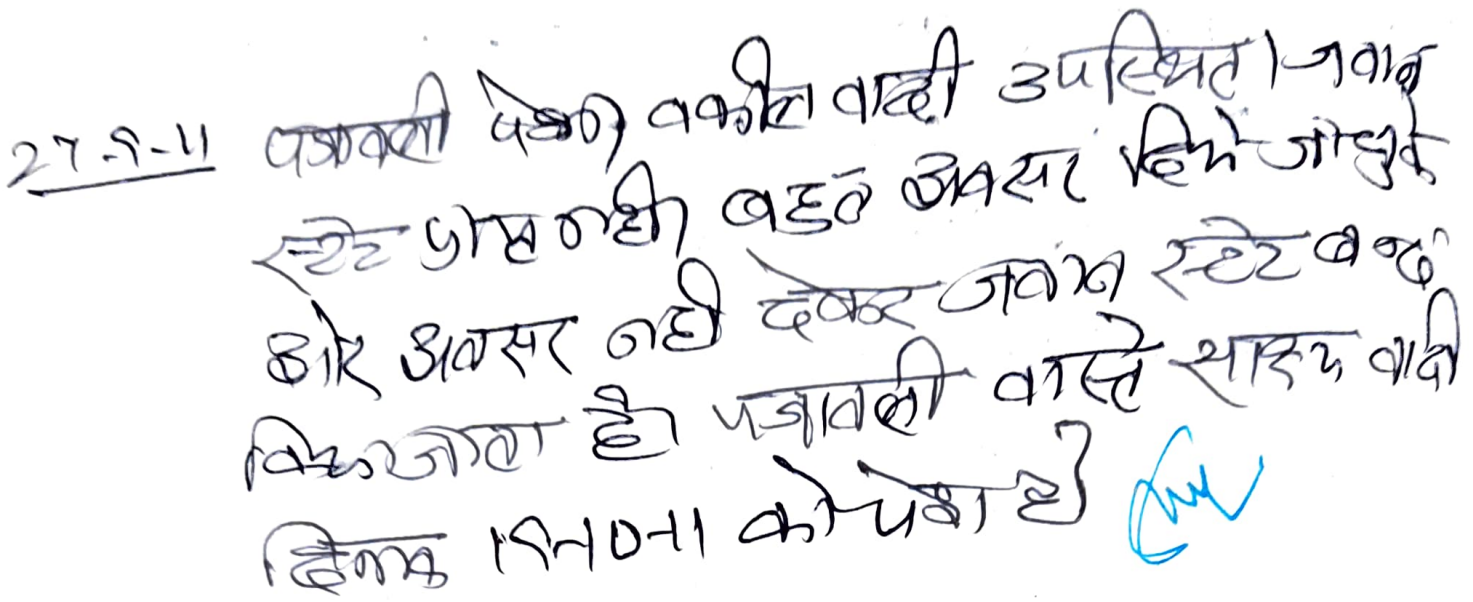 27-9-11 पत्रावली पेश। वकील वादी उपस्थित। जवाब
स्टेट प्राप्त नही। बहुत अवसर दिये जा चुके
और अवसर नही देकर जवाब स्टेट बन्द
किया जाता है। पत्रावली वास्ते साक्ष्य वादी
दिनांक 19-10-11 को पेश हो